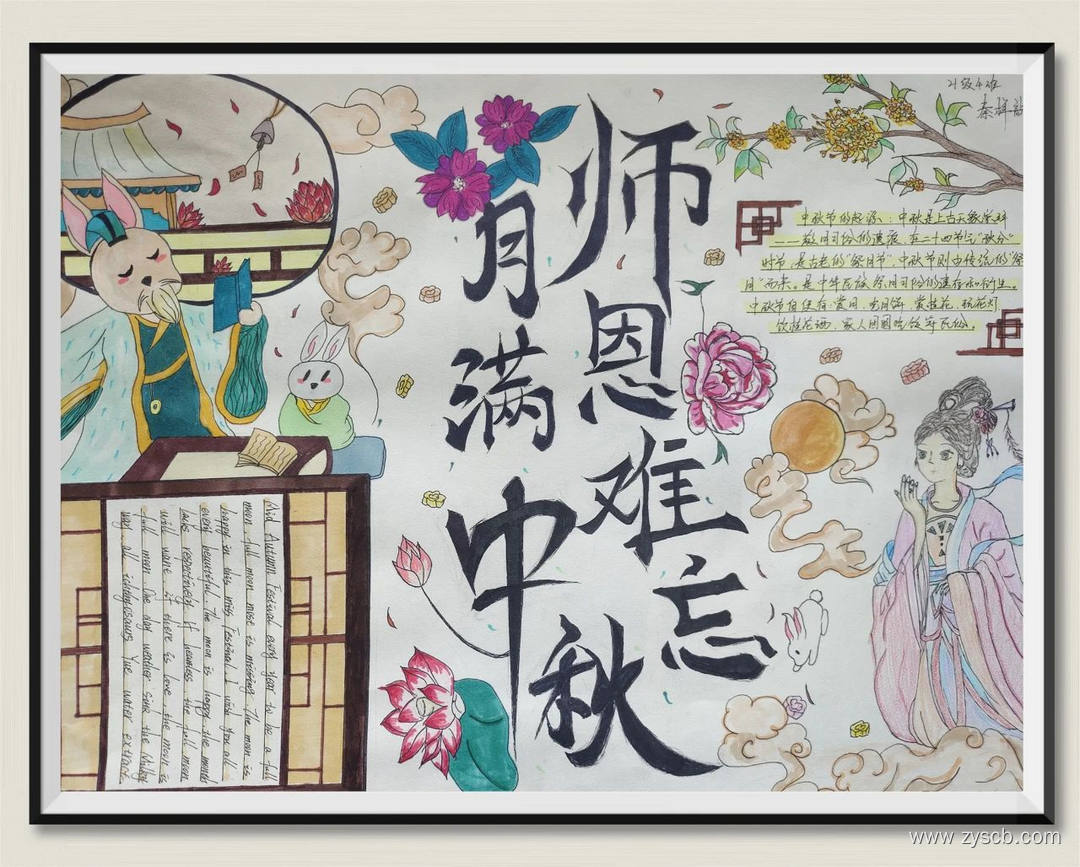 师恩难忘
月满中秋
21级4班
中秋节的起源：中秋是上古天象崇拜
——敬月习俗的遗痕。在二十四节气“秋分”
时节，是古老的“祭月节”，中秋节则由传统的“祭
月”而来。是中华民族祭月习俗的遗存和衍生。
中秋节自古有：赏月、吃月饼、赏桂花、玩花灯
饮桂花酒，家人团圆吃饭等民俗。
Mid Autumn Festival every year to be a full
moon, full moon muse is missing. The moon is
happy in this miss Festival. I wish you all
every beautiful. The moon is happy the minds
lacks respectively. If heavless the full moon
will wane if there is love, the moon is
full moon The day weather Song the
way all ichthyosaurs Yue water extract
www.zyscb.com